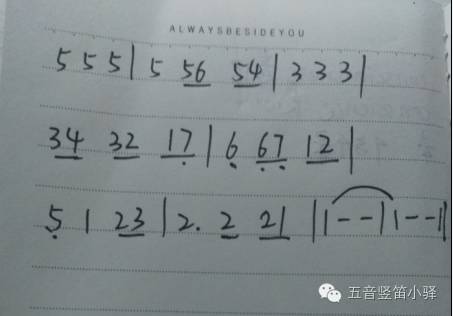 ALWAYSBESIDEYOU
5 5 5 | 5 56 54 | 3 3 3 |
34 32 17 | 6 67 12 |
5 1 23 | 2. 2 21 | 1 - - | 1 - - ||
五音竖笛小驿